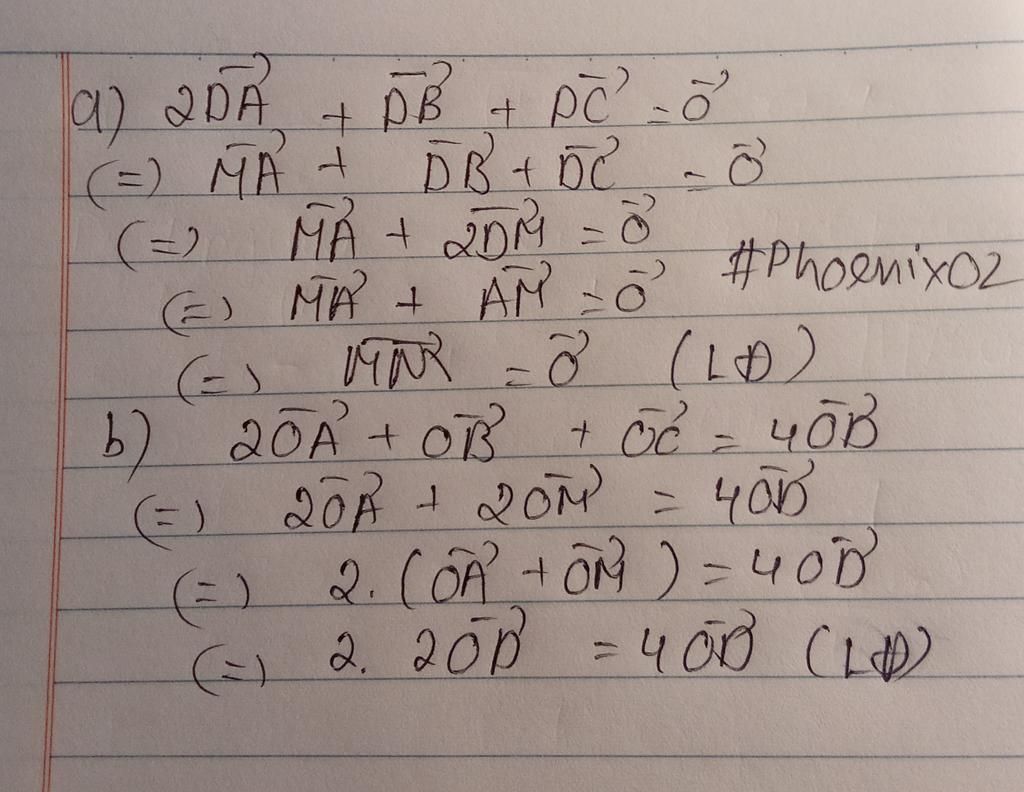 a) 2DA⃗ + DB⃗ + DC⃗ = O⃗
(=) MA⃗ + DB⃗ + DC⃗ = O⃗
(=) MA⃗ + 2DM⃗ = O⃗
#Phoenix02
(=) MA⃗ + AM⃗ = O⃗
(=) MM⃗ = O⃗ (LĐ)
b) 2OA⃗ + OB⃗ + OC⃗ = 4OD⃗
(=) 2OA⃗ + 2OM⃗ = 4OD⃗
(=) 2. (OA⃗ + OM⃗) = 4OD⃗
(=) 2. 2OD⃗ = 4OD⃗ (LĐ)